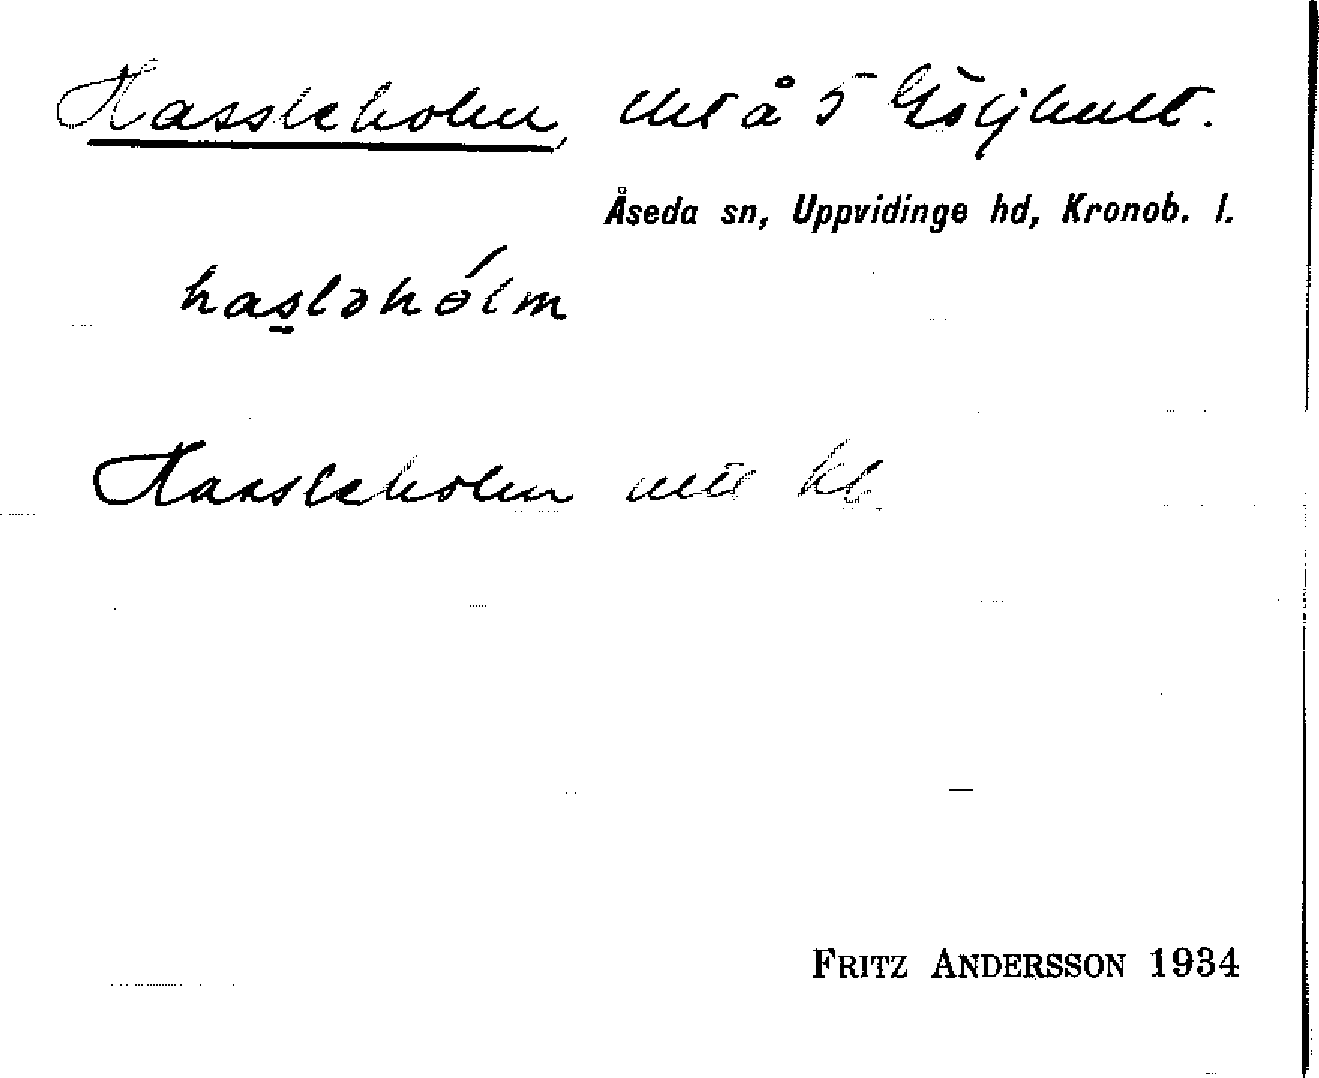 Hassleholm, utt å 5 Göljhult.
Åseda sn, Uppvidinge hd, Kronob. l.
hasləhólm
Hassleholm utt kl.
FRITZ ANDERSSON 1934